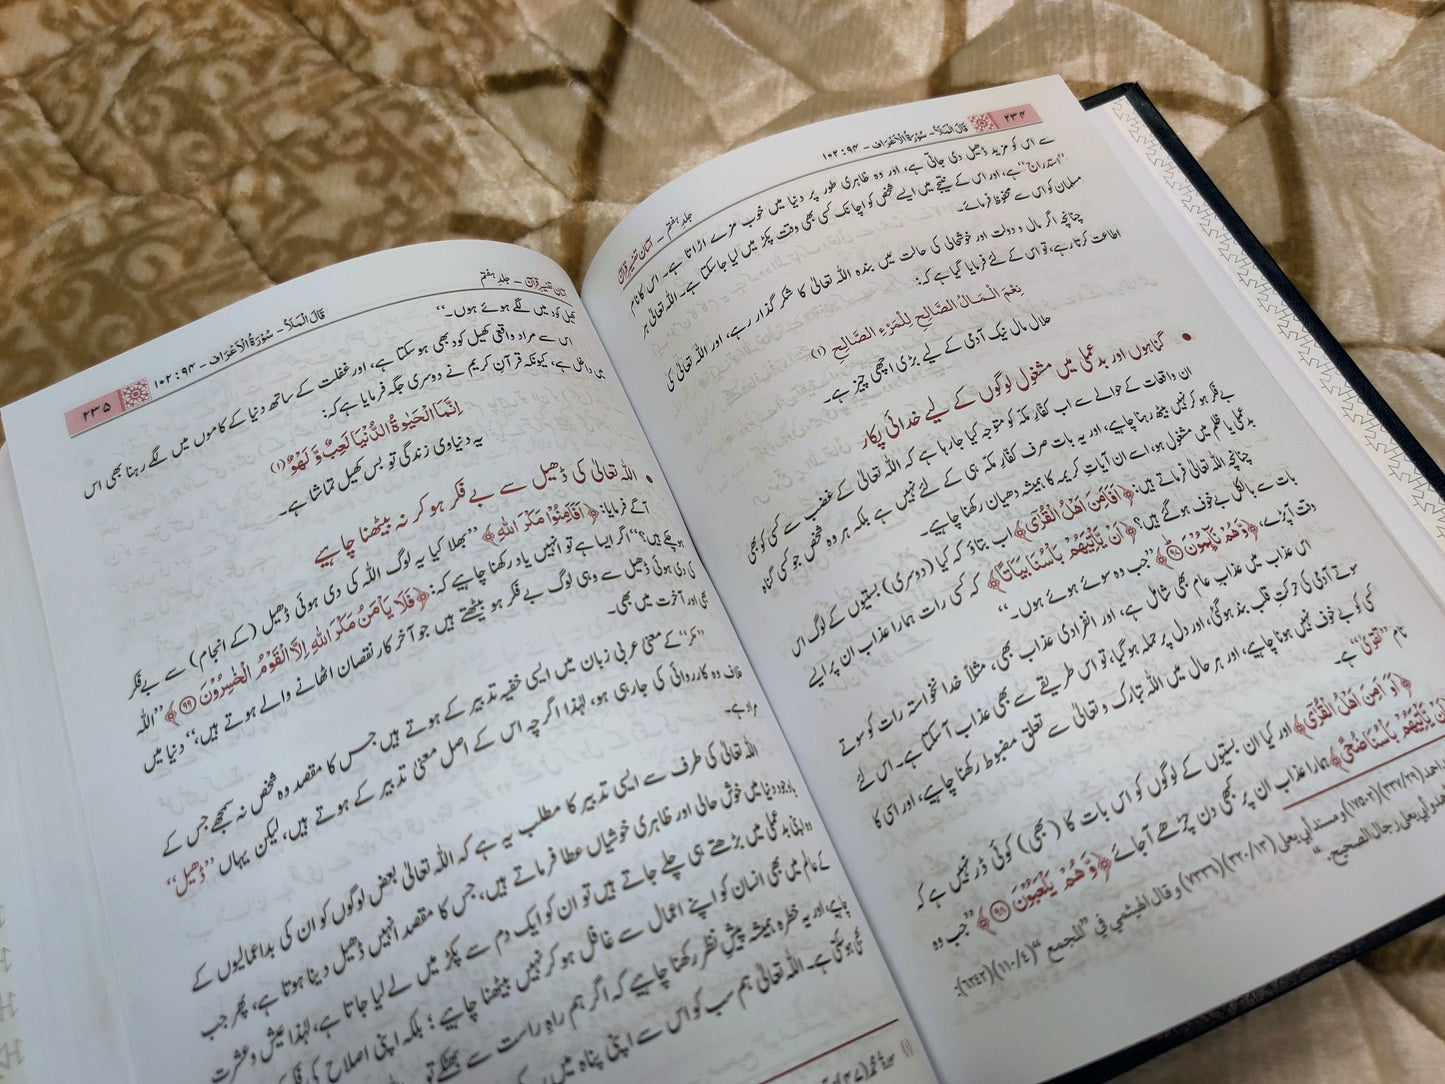 ۲۳۴
قَالَ الْمَلَأُ – سُوْرَةُ الْاَعْرَاف – ۹۴ : ۱۰۲
جلد ہفتم – آسان تفسیر قرآن
سے اس کو مزید ڈھیل دی جاتی ہے، اور وہ ظاہری طور پر دنیا میں خوب مزے اڑاتا ہے۔ اس کا نام
”استدراج“ ہے، اور اس کے نتیجے میں ایسے شخص کو اچانک کسی بھی وقت پکڑ میں لیا جا سکتا ہے۔ اللہ تعالیٰ ہر
مسلمان کو اس سے محفوظ فرمائے۔
چنانچہ اگر مال و دولت اور خوشحالی کی حالت میں بندہ اللہ تعالیٰ کا شکر گذار رہے، اور اللہ تعالیٰ کی
اطاعت کرتا رہے، تو اس کے لئے فرمایا گیا ہے کہ:
نِعْمَ الْـمَالُ الصَّالِحِ لِلْمَرْءِ الصَّالِحِ (۱)
حلال مال نیک آدمی کے لیے بڑی اچھی چیز ہے۔
• گناہوں اور بدعملی میں مشغول لوگوں کے لیے خدائی پکار
ان واقعات کے حوالے سے اب کفارِ مکہ کو متوجہ کیا جا رہا ہے کہ اللہ تعالیٰ کے غضب سے کسی کو بھی
بے فکر ہو کر نہیں بیٹھ رہنا چاہیے، اور یہ بات صرف کفارِ مکہ ہی کے لئے نہیں ہے بلکہ ہر وہ شخص جو کسی گناہ
بدعملی یا ظلم میں مشغول ہو، اسے ان آیاتِ کریمہ کا ہمیشہ دھیان رکھنا چاہیے۔
چنانچہ اللہ تعالیٰ فرماتے ہیں: ﴿اَفَاَمِنَ اَهْلُ الْقُرٰٓى﴾ اب بتاؤ کہ کیا (دوسری) بستیوں کے لوگ اس
بات سے بالکل بے خوف ہو گئے ہیں؟ ﴿اَنْ يَّاْتِيَهُمْ بَاْسُنَا بَيَاتًا﴾ کہ کسی رات ہمارا عذاب ان پر ایسے
وقت آ پڑے، ﴿وَّهُمْ نَآئِمُوْنَ ۹۷﴾ ”جب وہ سوئے ہوئے ہوں۔“
اس عذاب میں عذابِ عام بھی شامل ہے، اور انفرادی عذاب بھی، مثلاً خدانخواستہ رات کو سوتے
سوتے آدمی کی حرکتِ قلب بند ہو گئی، اور دل پر حملہ ہو گیا، تو اس طریقے سے بھی عذاب آ سکتا ہے۔ اس لئے
کسی کو بے خوف نہیں ہونا چاہیے، اور ہر حال میں اللہ تبارک و تعالیٰ سے تعلق مضبوط رکھنا چاہیے، اور اسی کا
نام ”تقویٰ“ ہے۔
﴿اَوَ اَمِنَ اَهْلُ الْقُرٰٓى﴾ اور کیا ان بستیوں کے لوگوں کو اس بات کا (بھی) کوئی ڈر نہیں ہے کہ
اَنْ يَّاْتِيَهُمْ بَاْسُنَا ضُحًى﴾ ہمارا عذاب ان پر کبھی دن چڑھے آ جائے ﴿وَّهُمْ يَلْعَبُوْنَ ۹۸﴾ ”جب وہ
احمد (۳۳۷/۲۹) (۱۷۵۰۲) و مسند أبي يعلى (۳۲۰/۱۳) (۷۳۳٦) و قال الهيثمي في ”المجمع“ (۱۱۰/٤) (٦٢٤٢):
أبي يعلى رجال الصحيح.“
آسان تفسیر قرآن – جلد ہفتم
قَالَ الْمَلَأُ – سُوْرَةُ الْاَعْرَاف – ۹۴ : ۱۰۲
۲۳۵
کھیل کود میں لگے ہوئے ہوں۔“
اس سے مراد واقعی کھیل کود بھی ہو سکتا ہے، اور غفلت کے ساتھ دنیا کے کاموں میں لگے رہنا بھی اس
میں داخل ہے، کیونکہ قرآنِ کریم نے دوسری جگہ فرمایا ہے کہ:
اِنَّمَا الْحَيٰوةُ الدُّنْيَا لَعِبٌ وَّ لَهْوٌ (۱)
یہ دنیاوی زندگی تو بس کھیل تماشا ہے۔
• اللہ تعالیٰ کی ڈھیل سے بے فکر ہو کر نہ بیٹھنا چاہیے
آگے فرمایا: ﴿اَفَاَمِنُوْا مَكْرَ اللّٰهِ﴾ ”بھلا کیا یہ لوگ اللہ کی دی ہوئی ڈھیل (کے انجام) سے بے فکر
ہو چکے ہیں؟“ اگر ایسا ہے تو انہیں یاد رکھنا چاہیے کہ: ﴿فَلَا يَاْمَنُ مَكْرَ اللّٰهِ اِلَّا الْقَوْمُ الْخٰسِرُوْنَ ۹۹﴾ ”اللہ
کی دی ہوئی ڈھیل سے وہی لوگ بے فکر ہو بیٹھتے ہیں جو آخر کار نقصان اٹھانے والے ہوتے ہیں،“ دنیا میں
بھی اور آخرت میں بھی۔
”مکر“ کے معنی عربی زبان میں ایسی خفیہ تدبیر کے ہوتے ہیں جس کا مقصد وہ شخص نہ سمجھے جس کے
خلاف وہ کارروائی کی جا رہی ہو، لہٰذا اگرچہ اس کے اصل معنی تدبیر کے ہوتے ہیں، لیکن یہاں ”ڈھیل“
مراد ہے۔
اللہ تعالیٰ کی طرف سے ایسی تدبیر کا مطلب یہ ہے کہ اللہ تعالیٰ بعض لوگوں کو ان کی بداعمالیوں کے
باوجود دنیا میں خوش حالی اور ظاہری خوشیاں عطا فرماتے ہیں، جس کا مقصد انہیں ڈھیل دینا ہوتا ہے، پھر جب
وہ اپنی بدعملی میں بڑھتے ہی چلے جاتے ہیں تو ان کو ایک دم سے پکڑ میں لے لیا جاتا ہے، لہٰذا عیش و عشرت
کے عالم میں بھی انسان کو اپنے اعمال سے غافل ہو کر نہیں بیٹھنا چاہیے؛ بلکہ اپنی اصلاح کی
چاہیے، اور یہ خطرہ ہمیشہ پیشِ نظر رکھنا چاہیے کہ اگر ہم راہِ راست سے بھٹکے تو
بھی ہو سکتی ہے۔ اللہ تعالیٰ ہم سب کو اس سے اپنی پناہ میں